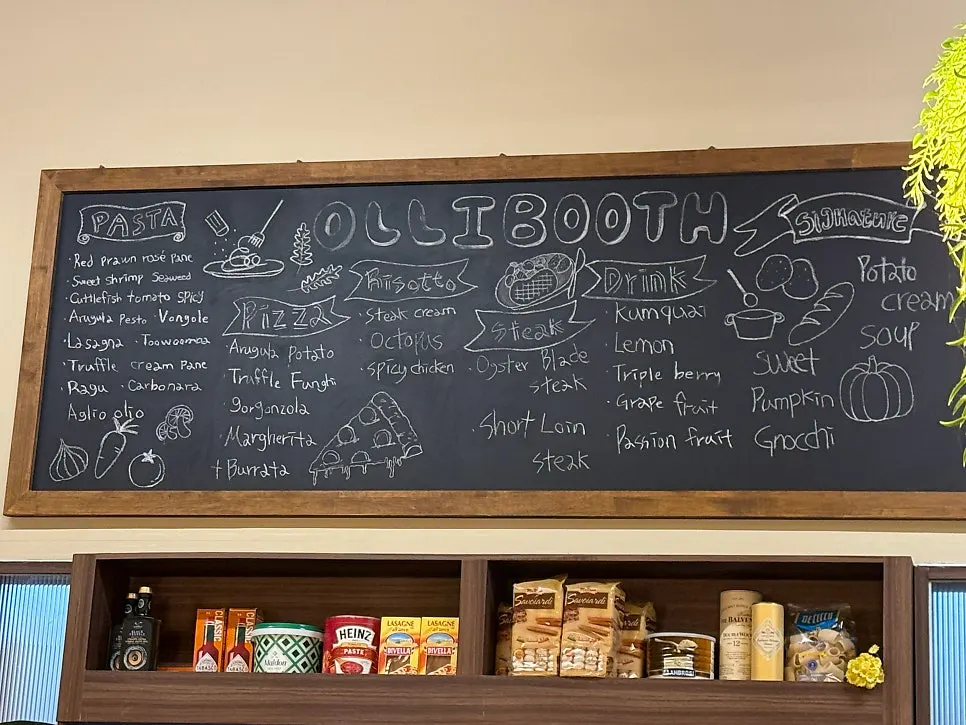 OLLIBOOTH
PASTA
· Red prawn rosé pane
· Sweet shrimp Seaweed
· Cuttlefish tomato spicy
· Arugula Pesto · Vongole
· Lasagna · Toowoomba
· Truffle cream Pane
· Ragu · Carbonara
Aglio olio
Pizza
· Arugula Potato
· Truffle Funghi
· gorgonzola
· Margherita
+ Burrata
Risotto
· Steak cream
· Octopus
· spicy chicken
Steak
· Oyster Blade
steak
· Short Loin
steak
Drink
· Kumquat
· Lemon
· Triple berry
· Grape fruit
· Passion fruit
Signature
Potato
cream
soup
Sweet
Pumpkin
Gnocchi
CLASSIC
TABASCO
CLASSIC
TABASCO
Maldon
HEINZ
PASTE
LASAGNE
DIVELLA
LASAGNE
DIVELLA
Savoiardi
Savoiardi
THE BALVENIE
DOUBLEWOOD
12